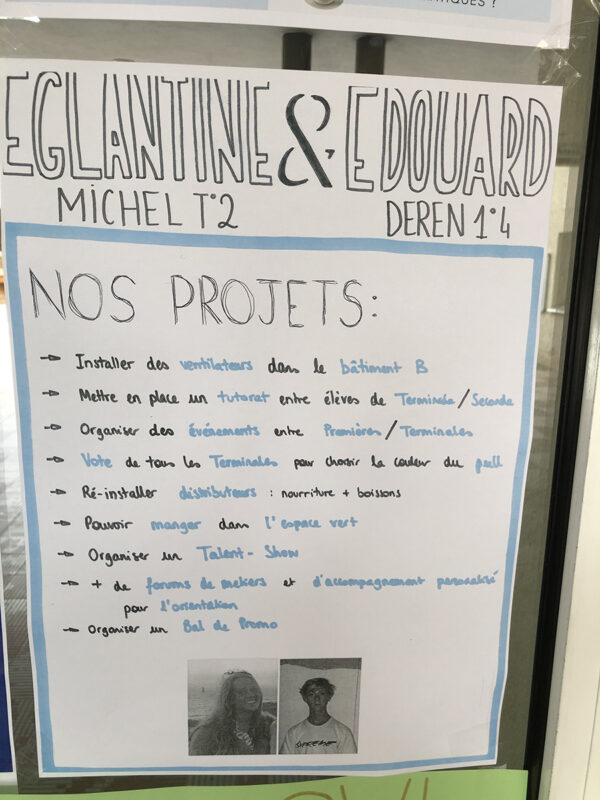 TIQUES ?
EGLANTINE & EDOUARD
MICHEL T°2
DEREN 1°4
NOS PROJETS:
→ Installer des ventilateurs dans le bâtiment B
→ Mettre en place un tutorat entre élèves de Terminale/Seconde
→ Organiser des événements entre Premières/Terminales
→ Vote de tous les Terminales pour choisir la couleur du pull
→ Ré-installer distributeurs : nourriture + boissons
→ Pouvoir manger dans l'espace vert
→ Organiser un Talent-Show
→ + de forums de métiers et d'accompagnement personalisé
pour l'orientation
→ Organiser un Bal de Promo